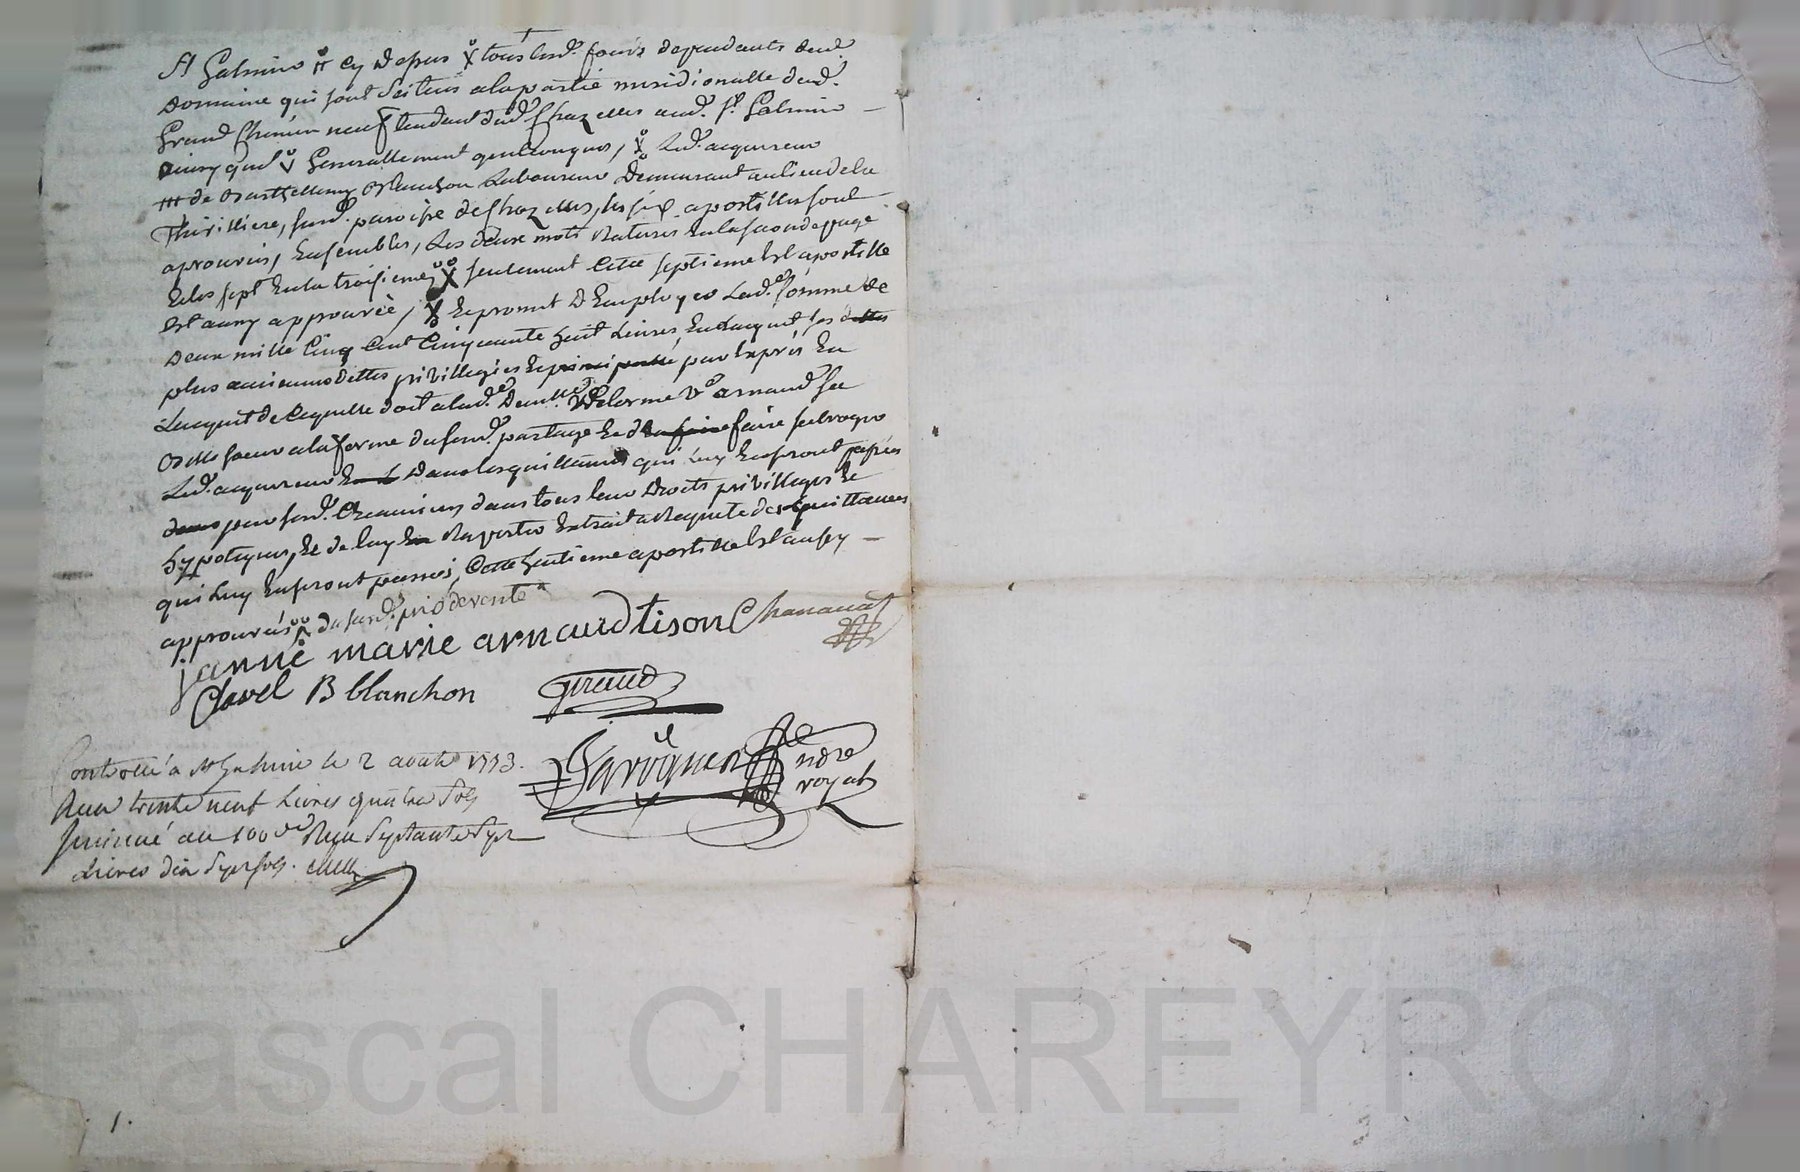 St Galmier # cy dessus X tous lesd. fonds dependants dud.
Domaine qui sont scitués a la partie meridionalle dud.
Grand Chemin neuf tendant dud. Chazelles aud. St Galmier
ainsy que Generallement quelconques, Led. acquereur
de Barthellemy Blanchon Laboureur Demeurant au lieu de la
Thivilliere, susd. paroisse de Chazelles, les six apostilles sont
aprouvées, Ensembles, Les deux mots Raturés En la seconde page
Et les sept En la troisieme X seulement Cette septieme Est apostille
Est aussy approuvée, X Et promet D'Employer Lad. somme de
Deux mille Cinq Cent Cinquante huit Livres En Lacquit ses dettes
plus anciennes dettes privillegiées Et principalle par Exprés En
Lacquit de Ce quelle doit a lad. Demlle Delorme Ve arnaud sa
Belle soeur a la forme du susd. partage Et d faire subroger
Led. acquereur Dans les quittances qui Luy En seront passées
par sesd. Creanciers dans tous leur Droits privilleges Et
hypoteques, Et de luy En Raporter Extrait a Requete des quittances
qui Luy En seront passées, Cette huitieme apostille Est aussy
approuvée du susd. prix de vente
janne marie arnaud tison Chanavat
Clavel B blanchon giraud
Controllé a St Galmier le 2 aoust 1773.
Reçu trente neuf Livres quatre sols
Insinué au 100e Reçu Septante Sept
Livres dix Sept sols.
ndre
royal
1.
Pascal CHAREYRON